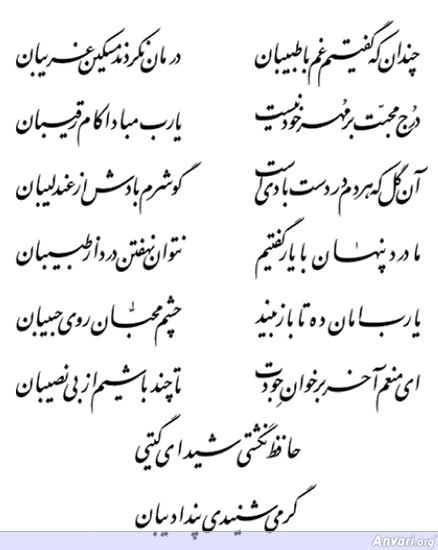 چندان که گفتیم غم با طبیبان درمان نکردند مسکین غریبان
درج محبت بر مهر خود نیست یا رب مبادا کام رقیبان
آن گل که هر دم در دست بادی است گو شرم بادش از عندلیبان
ما درد پنهان با یار گفتیم نتوان نهفتن درد از طبیبان
یا رب امان ده تا باز بیند چشم محبان روی حبیبان
ای منعم آخر بر خوان جودت تا چند باشیم از بی نصیبان
حافظ نگشتی شیدای گیتی
گر می شنیدی پند ادیبان
Anvari.org